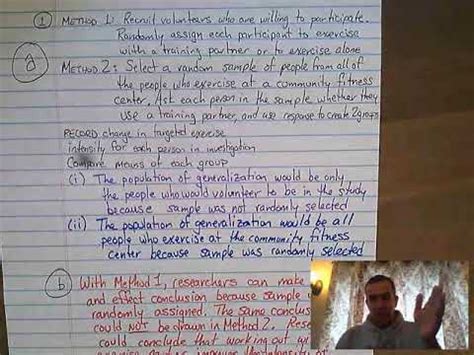 ① METHOD 1: Recruit volunteers who are willing to participate.
Randomly assign each participant to exercise
with a training partner or to exercise alone
ⓐ METHOD 2: Select a random sample of people from all of
the people who exercise at a community fitness
center. Ask each person in the sample whether they
use a training partner, and use response to create 2 groups
RECORD change in targeted exercise
intensity for each person in investigation
Compare means of each group
(i) The population of generalization would be only
the people who would volunteer to be in the study
because sample was not randomly selected
(ii) The population of generalization would be all
people who exercise at the community fitness
center because sample was randomly selected
ⓑ With Method 1, researchers can make
and effect conclusion because sample
randomly assigned. The same conclus
could NOT be drawn in Method 2. Rese
could conclude that working out